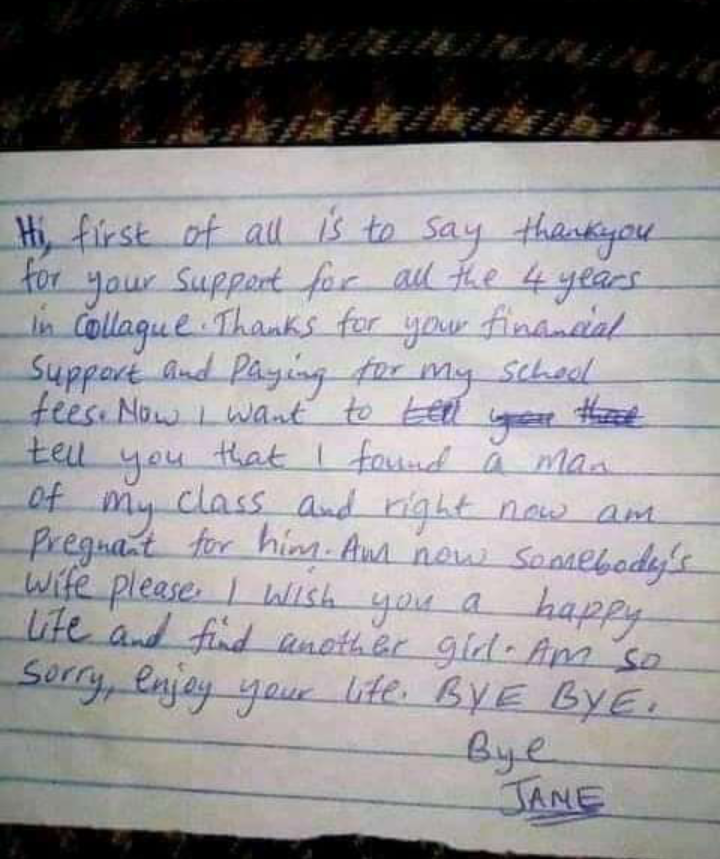 Hi, first of all is to say thankyou
for your support for all the 4 years
in Collague. Thanks for your financial
Support and Paying for my school
fees. Now I want to tell you that
tell you that I found a man
of my class and right now am
Pregnant for him. Am now somebody's
wife please. I wish you a happy
life and find another girl. Am so
sorry, enjoy your life. BYE BYE.
Bye
JANE